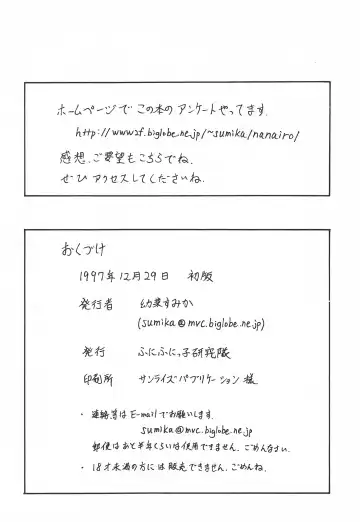 ホームページで この本の アンケートやってます.
http://www2f.biglobe.ne.jp/~sumika/nanairo/
感想、ご要望もこちらでね.
ぜひ アクセスしてくださいね.
おくづけ
1997年12月29日 初版
発行者 幼葉すみか
(sumika@mvc.biglobe.ne.jp)
発行 ふにふにっ子研究隊
印刷所 サンライズパブリケーション様
・連絡等は E-mailでお願いします.
sumika@mvc.biglobe.ne.jp
郵便はあと半年くらいは使用できません. ごめんなさい.
・18才未満の方には販売できません. ごめんね.